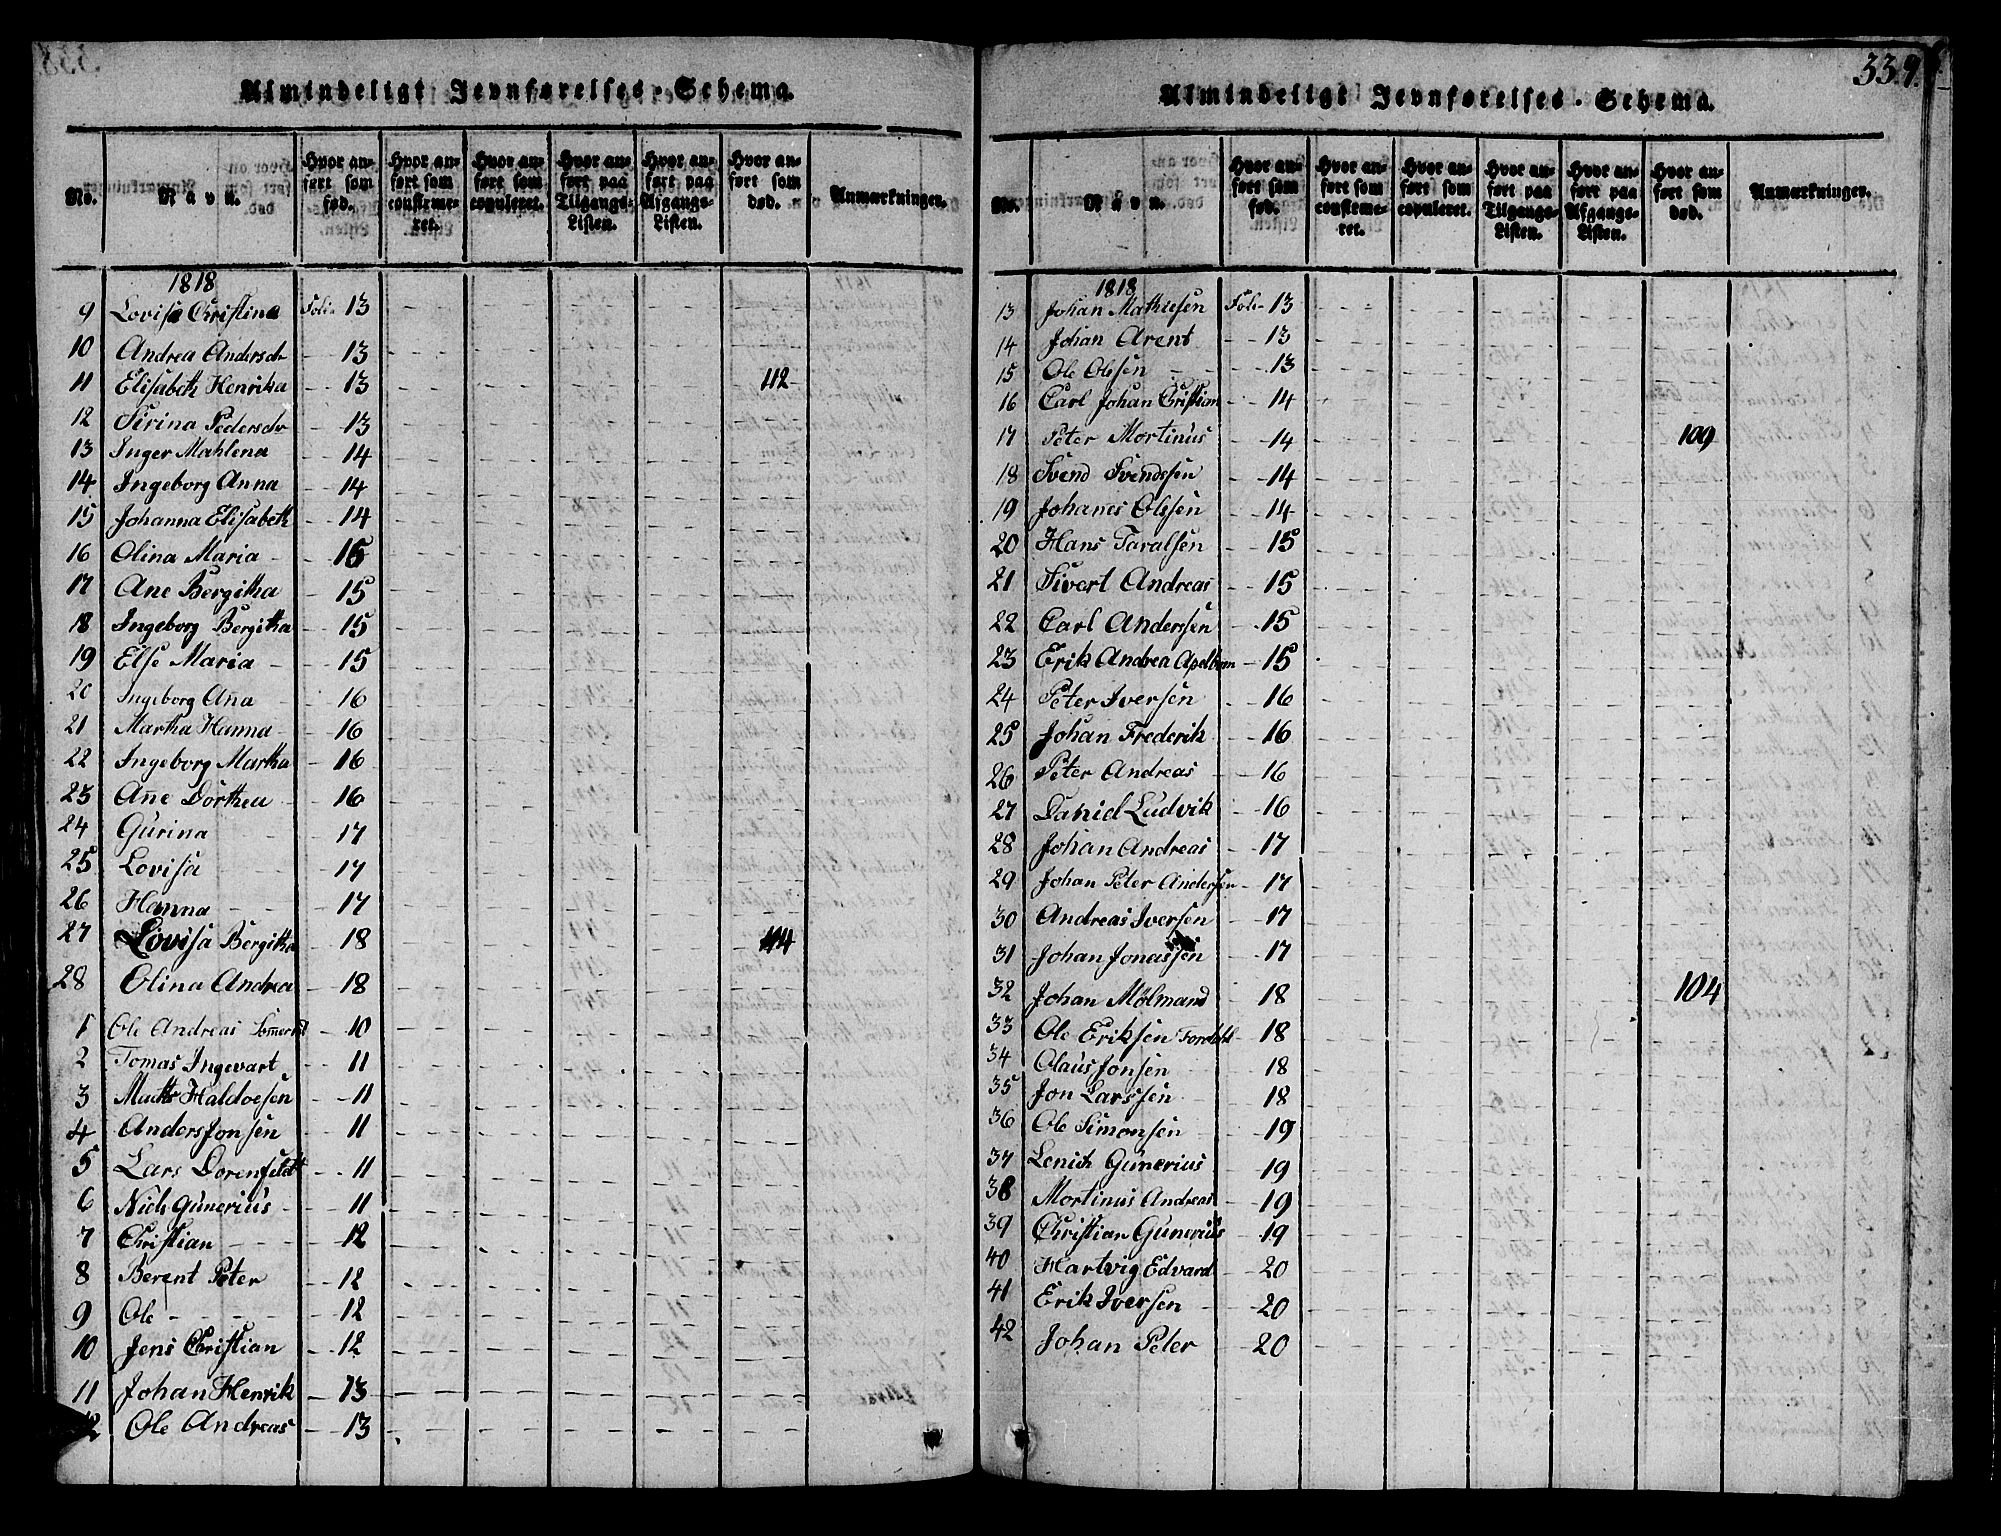 Almindeligt Jevnførelses-Schema.
No. Navn. Hvor anført som fød. Hvor anført som confirmeret. Hvor anført som copuleret. Hvor anført paa Tilgangs-Listen. Hvor anført paa Afgangs-Listen. Hvor anført som død. Anmærkninger.
1818
9 Lovisa Christina Foli- 13
10 Andrea Andersdr 13
11 Elisabeth Henrika 13 112
12 Sirina Pedersdr 13
13 Inger Mahlena 14
14 Ingeborg Anna 14
15 Johanna Elisabeth 14
16 Olina Maria 15
17 Ane Bergitha 15
18 Ingeborg Bergitha 15
19 Else Maria 15
20 Ingeborg Aña 16
21 Martha Hanna 16
22 Ingeborg Martha 16
23 Añe Dorthea 16
24 Gurina 17
25 Lovisa 17
26 Hanna 17
27 Lovisa Bergitha 18 114
28 Olina Andrea 18
1 Ole Andreas 10
2 Tomas Ingevart 11
3 Haldoesen 11
4 Anders Jonsen 11
5 Lars Dorenfeldt 11
6 Niels Gunerius 11
7 Christian 12
8 Berent Peter 12
9 Ole 12
10 Jens Christian 12
11 Johan Henrik 13
12 Ole Andreas 13
339.
Almindeligt Jevnførelses-Schema.
No. Navn. Hvor anført som fød. Hvor anført som confirmeret. Hvor anført som copuleret. Hvor anført paa Tilgangs-Listen. Hvor anført paa Afgangs-Listen. Hvor anført som død. Anmærkninger.
1818
13 Johan Mathiesen Foli- 13
14 Johan Arent 13
15 Ole Olesen 13
16 Carl Johan Cristian 14
17 Peter Mortinus 14 109
18 Svend Svendsen 14
19 Johanes Olesen 14
20 Hans Taralsen 15
21 Sivert Andreas 15
22 Carl Anderssen 15
23 Erik Andrea 15
24 Peter Iversen 16
25 Johan Frederik 16
26 Peter Andreas 16
27 Daniel Ludvik 16
28 Johan Andreas 17
29 Johan Peter Andersen 17
30 Andreas Iversen 17
31 Johan Jonassen 17
32 Johan Mølmand 18 104
33 Ole Eriksen 18
34 Olaus Jonsen 18
35 Jon Larssen 18
36 Ole Simonsen 19
37 Gunerius 19
38 Mortinus Andreas 19
39 Christian Gunerius 19
40 Hartvig Edvard 20
41 Erik Iversen 20
42 Johan Peter 20